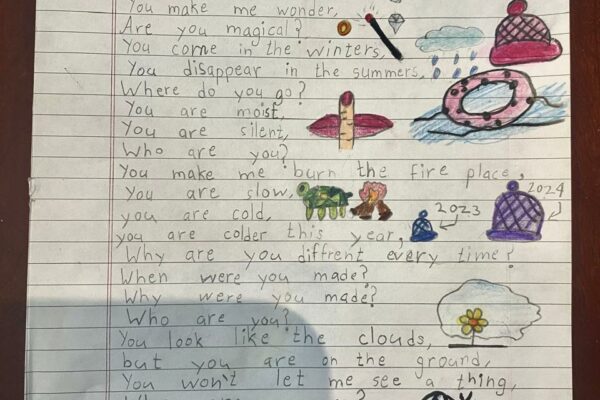 You make me wonder,
Are you magical?
You come in the winters,
You disappear in the summers,
Where do you go?
You are moist,
You are silent,
Who are you?
You make me burn the fire place,
You are slow,
2024
you are cold,
2023
you are colder this year,
Why are you diffrent every time?
When were you made?
Why were you made?
Who are you?
You look like the clouds,
but you are on the ground,
You won't let me see a thing,